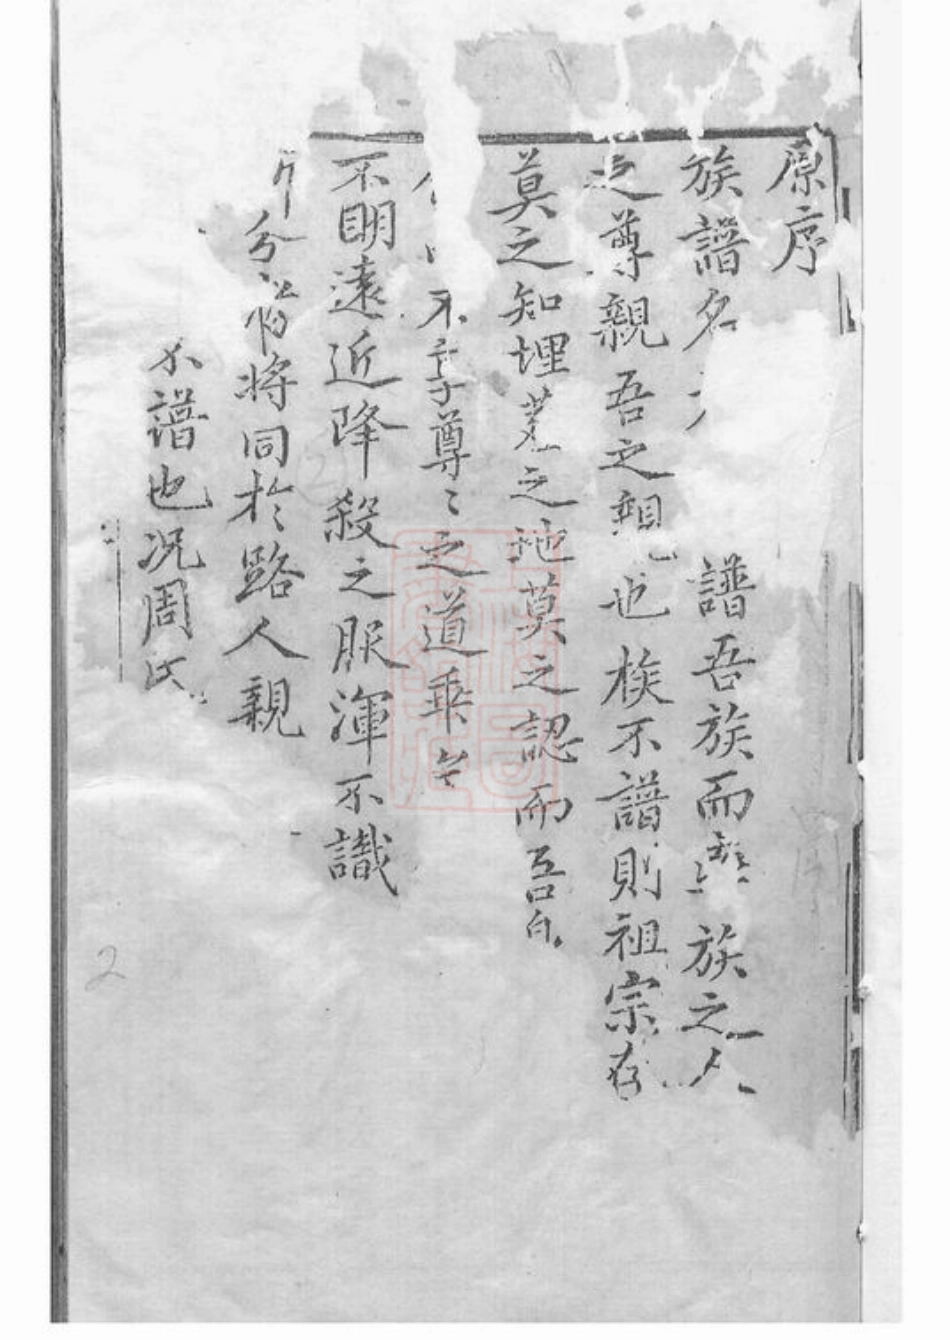 原序
族譜名譜吾族而族之人
之尊親吾之親也族不譜則祖宗存
莫之知埋葬之地莫之認而吾
不尊尊〻之道乖
不明遠近降殺之服渾不識
分将同於路人親
不譜也况周氏
2